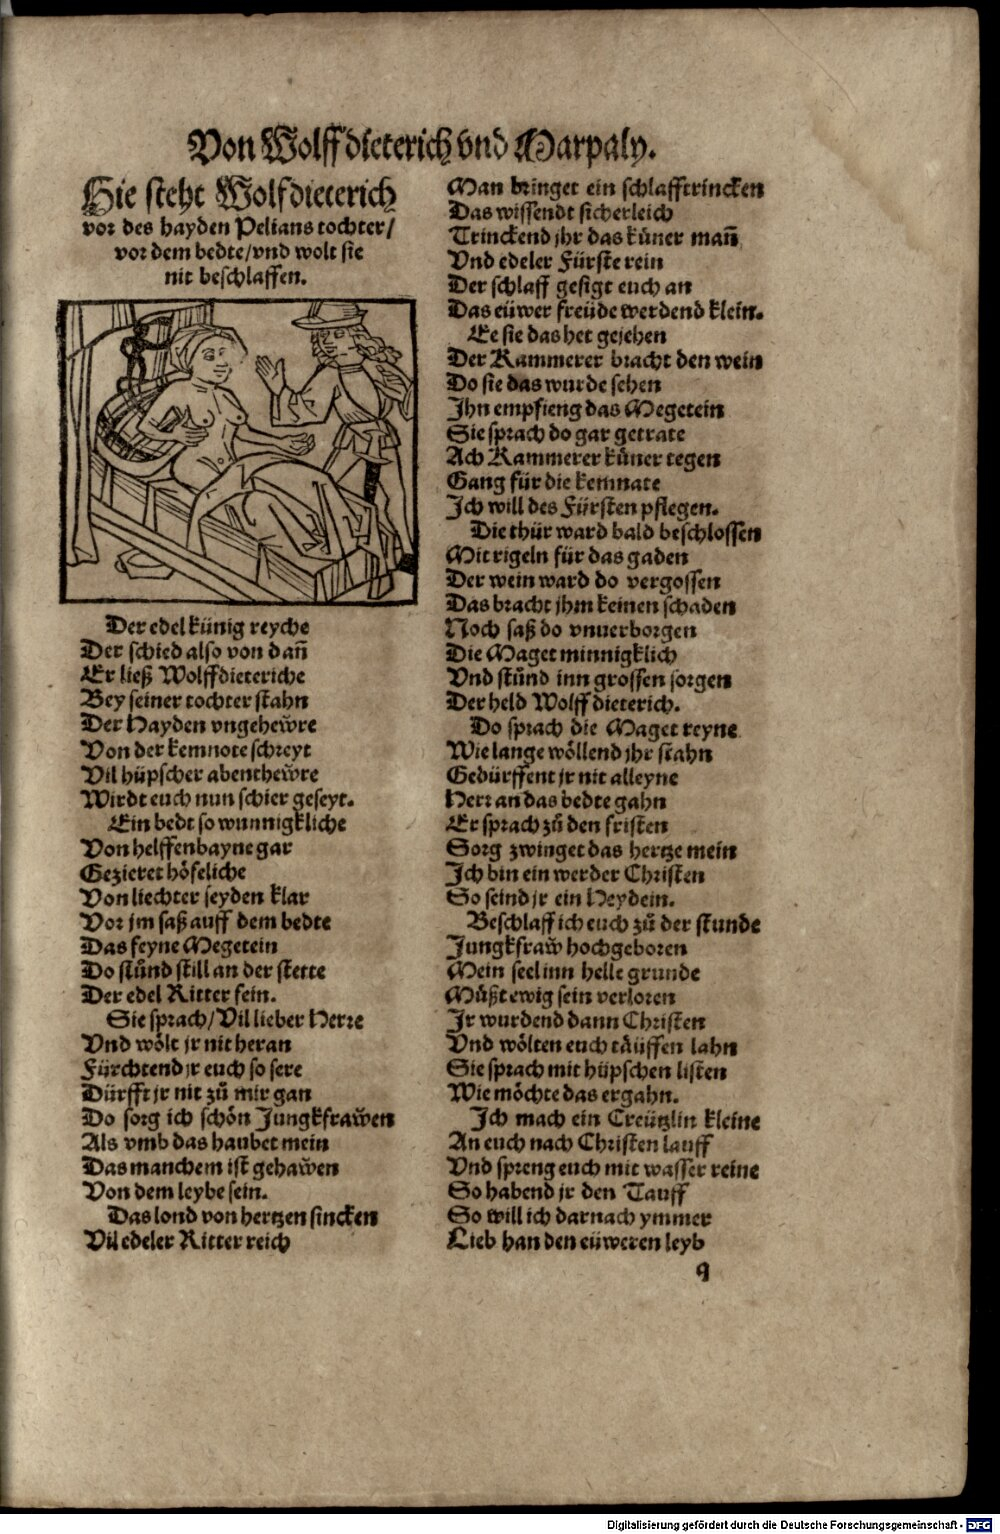 Von Wolffdieterich vnd Marpaly.
Hie steht Wolfdieterich
vor des hayden Pelians tochter/
vor dem bedte/vnd wolt sie
nit beschlaffen.
Der edel künig reyche
Der schied also von dañ
Er ließ Wolffdieteriche
Bey seiner tochter stahn
Der Hayden vngehewͤre
Von der kemnote schreyt
Vil hüpscher abenthewͤre
Wirdt euch nun schier geseyt.
Ein bedt so wunnigkliche
Von helffenbayne gar
Gezieret höfeliche
Von liechter seyden klar
Vor jm saß auff dem bedte
Das feyne Megetein
Do stuͤnd still an der stette
Der edel Ritter fein.
Sie sprach/Vil lieber Herre
Vnd wölt jr nit heran
Fürchtend jr euch so sere
Dürfft jr nit zuͤ mir gan
Do sorg ich schön Jungkfrawͤen
Als vmb das haubet mein
Das manchem ist gehawͤen
Von dem leybe sein.
Das lond von hertzen sincken
Vil edeler Ritter reich
Man bringet ein schlafftrincken
Das wissendt sicherleich
Trinckend jhr das küner mañ
Vnd edeler Fürste rein
Der schlaff gesigt euch an
Das eüwer freüde werdend klein.
Ee sie das het gejehen
Der Kammerer bracht den wein
Do sie das wurde sehen
Jhn empfieng das Megetein
Sie sprach do gar getrate
Ach Kammerer küner tegen
Gang für die kemnate
Jch will des Fürsten pflegen.
Die thür ward bald beschlossen
Mit rigeln für das gaden
Der wein ward do vergossen
Das bracht jhm keinen schaden
Noch saß do vnuerborgen
Die Maget minnigklich
Vnd stuͤnd inn grossen sorgen
Der held Wolffdieterich.
Do sprach die Maget reyne
Wie lange wöllend jhr stahn
Gedürffent jr nit alleyne
Herr an das bedte gahn
Er sprach zuͤ den fristen
Sorg zwinget das hertze mein
Jch bin ein werder Christen
So seind jr ein Heydein.
Beschlaff ich euch zuͤ der stunde
Jungkfrawͤ hochgeboren
Mein seel inn helle grunde
Müßt ewig sein verloren
Jr wurdend dann Christen
Vnd wölten euch täuffen lahn
Sie sprach mit hüpschen listen
Wie möchte das ergahn.
Jch mach ein Creützlin kleine
An euch nach Christen lauff
Vnd spreng euch mit wasser reine
So habend jr den Tauff
So will ich darnach ymmer
Lieb han den eüweren leyb
q
Digitalisierung gefördert durch die Deutsche Forschungsgemeinschaft - DFG